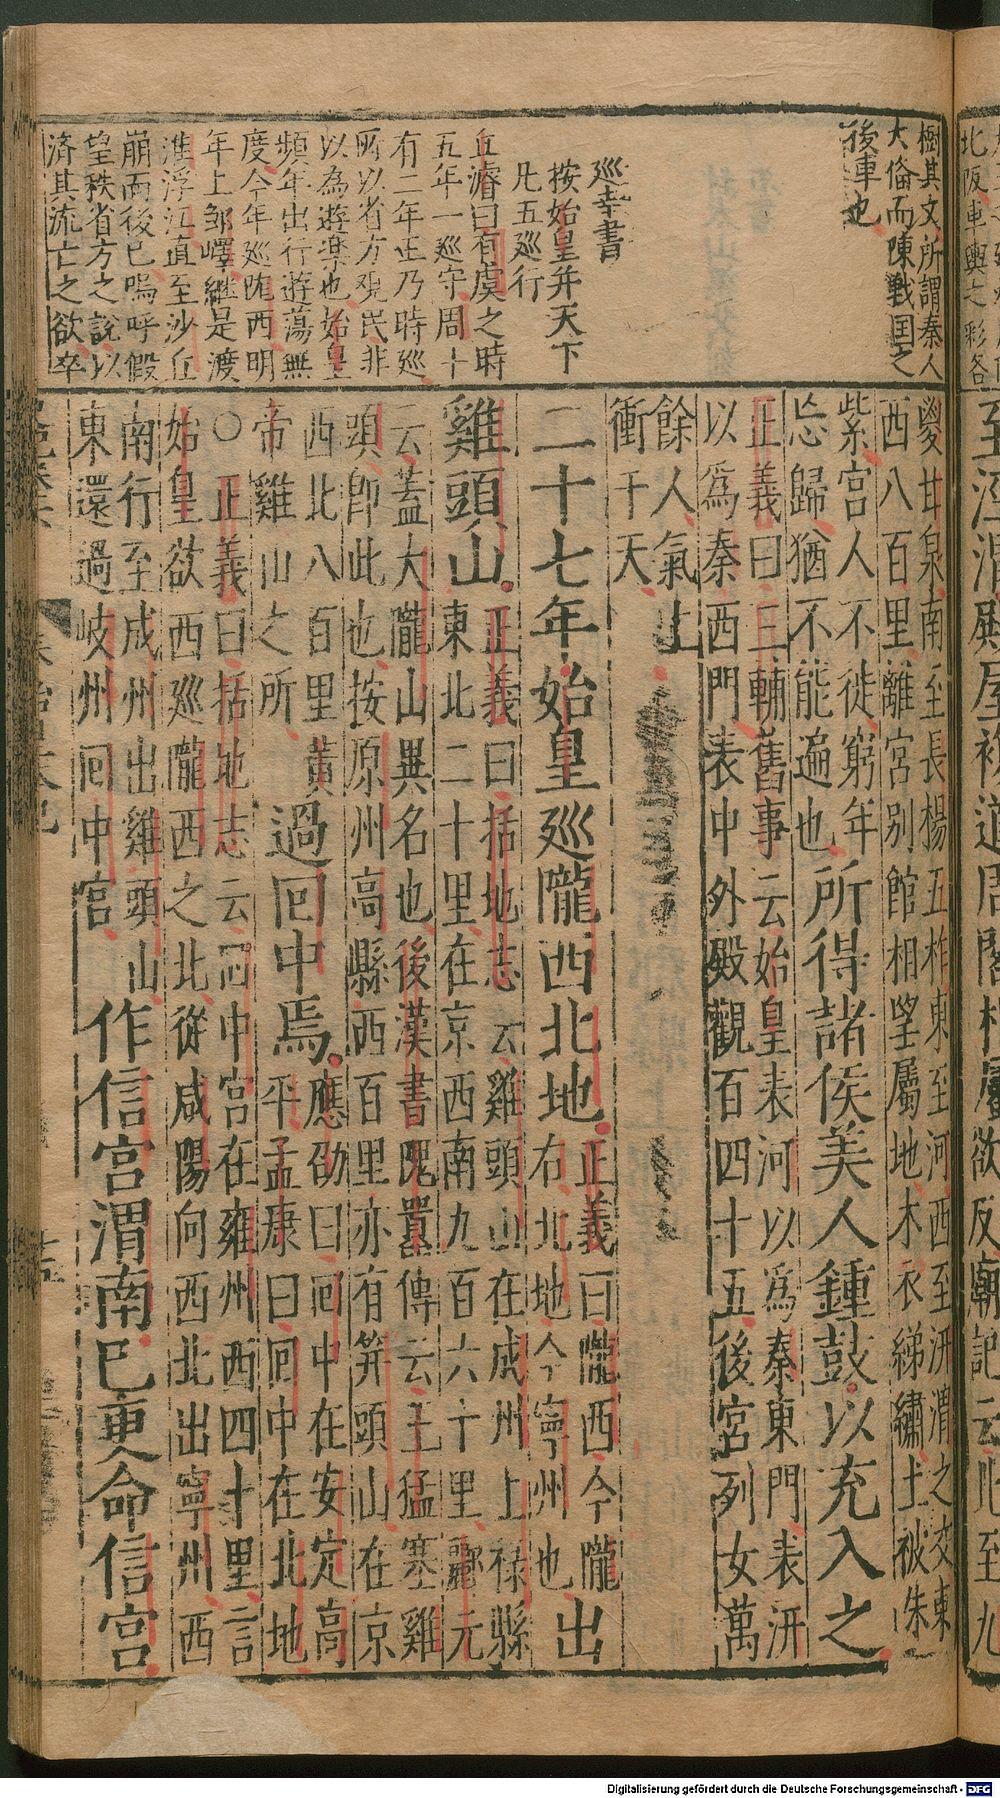 樹其文所謂秦人
大倫而陳戰国之
後車也
巡幸書
按始皇并天下
凡五巡行
丘濬曰有虞之時
五年一巡守周十
有二年王乃時巡
所以省方觀民非
以為遊樂也始皇
頻年出行遊蕩無
度今年巡隴西明
年上鄒嶧繼是渡
淮浮江直至沙丘
崩而後已嗚呼假
皇秩省方之說以
濟其流亡之欲卒
嶔甘泉南至長楊五柞東至河西至汧渭之交東
西八百里離宮別館相望屬地木衣綈繡土被朱
紫宮人不徙窮年
忘歸猶不能遍也
所得諸侯美人鍾鼓以充入之
正義曰三輔舊事云始皇表河以爲秦東門表汧
以爲秦西門表中外殿觀百四十五後宮列女萬
餘人氣上
衝于天
二十七年始皇巡隴西北地
正義曰隴西今隴
右北地今寧州也
出
雞頭山
正義曰括地志云雞頭山在成州上祿縣
東北二十里在京西南九百六十里酈元
云蓋大隴山異名也後漢書隗囂傳云王猛塞雞
頭卽此也按原州高縣西百里亦有笄頭山在京
西北八百里黄
帝雞山之所
過回中焉
應劭曰回中在安定高
平孟康曰回中在北地
〇正義曰括地志云回中宮在雍州西四十里言
始皇欲西巡隴西之北從咸陽向西北出寧州西
南行至成州出雞頭山
東還過岐州回中宮
作信宮渭南已更命信宮
十五
Digitalisierung gefördert durch die Deutsche Forschungsgemeinschaft - DFG